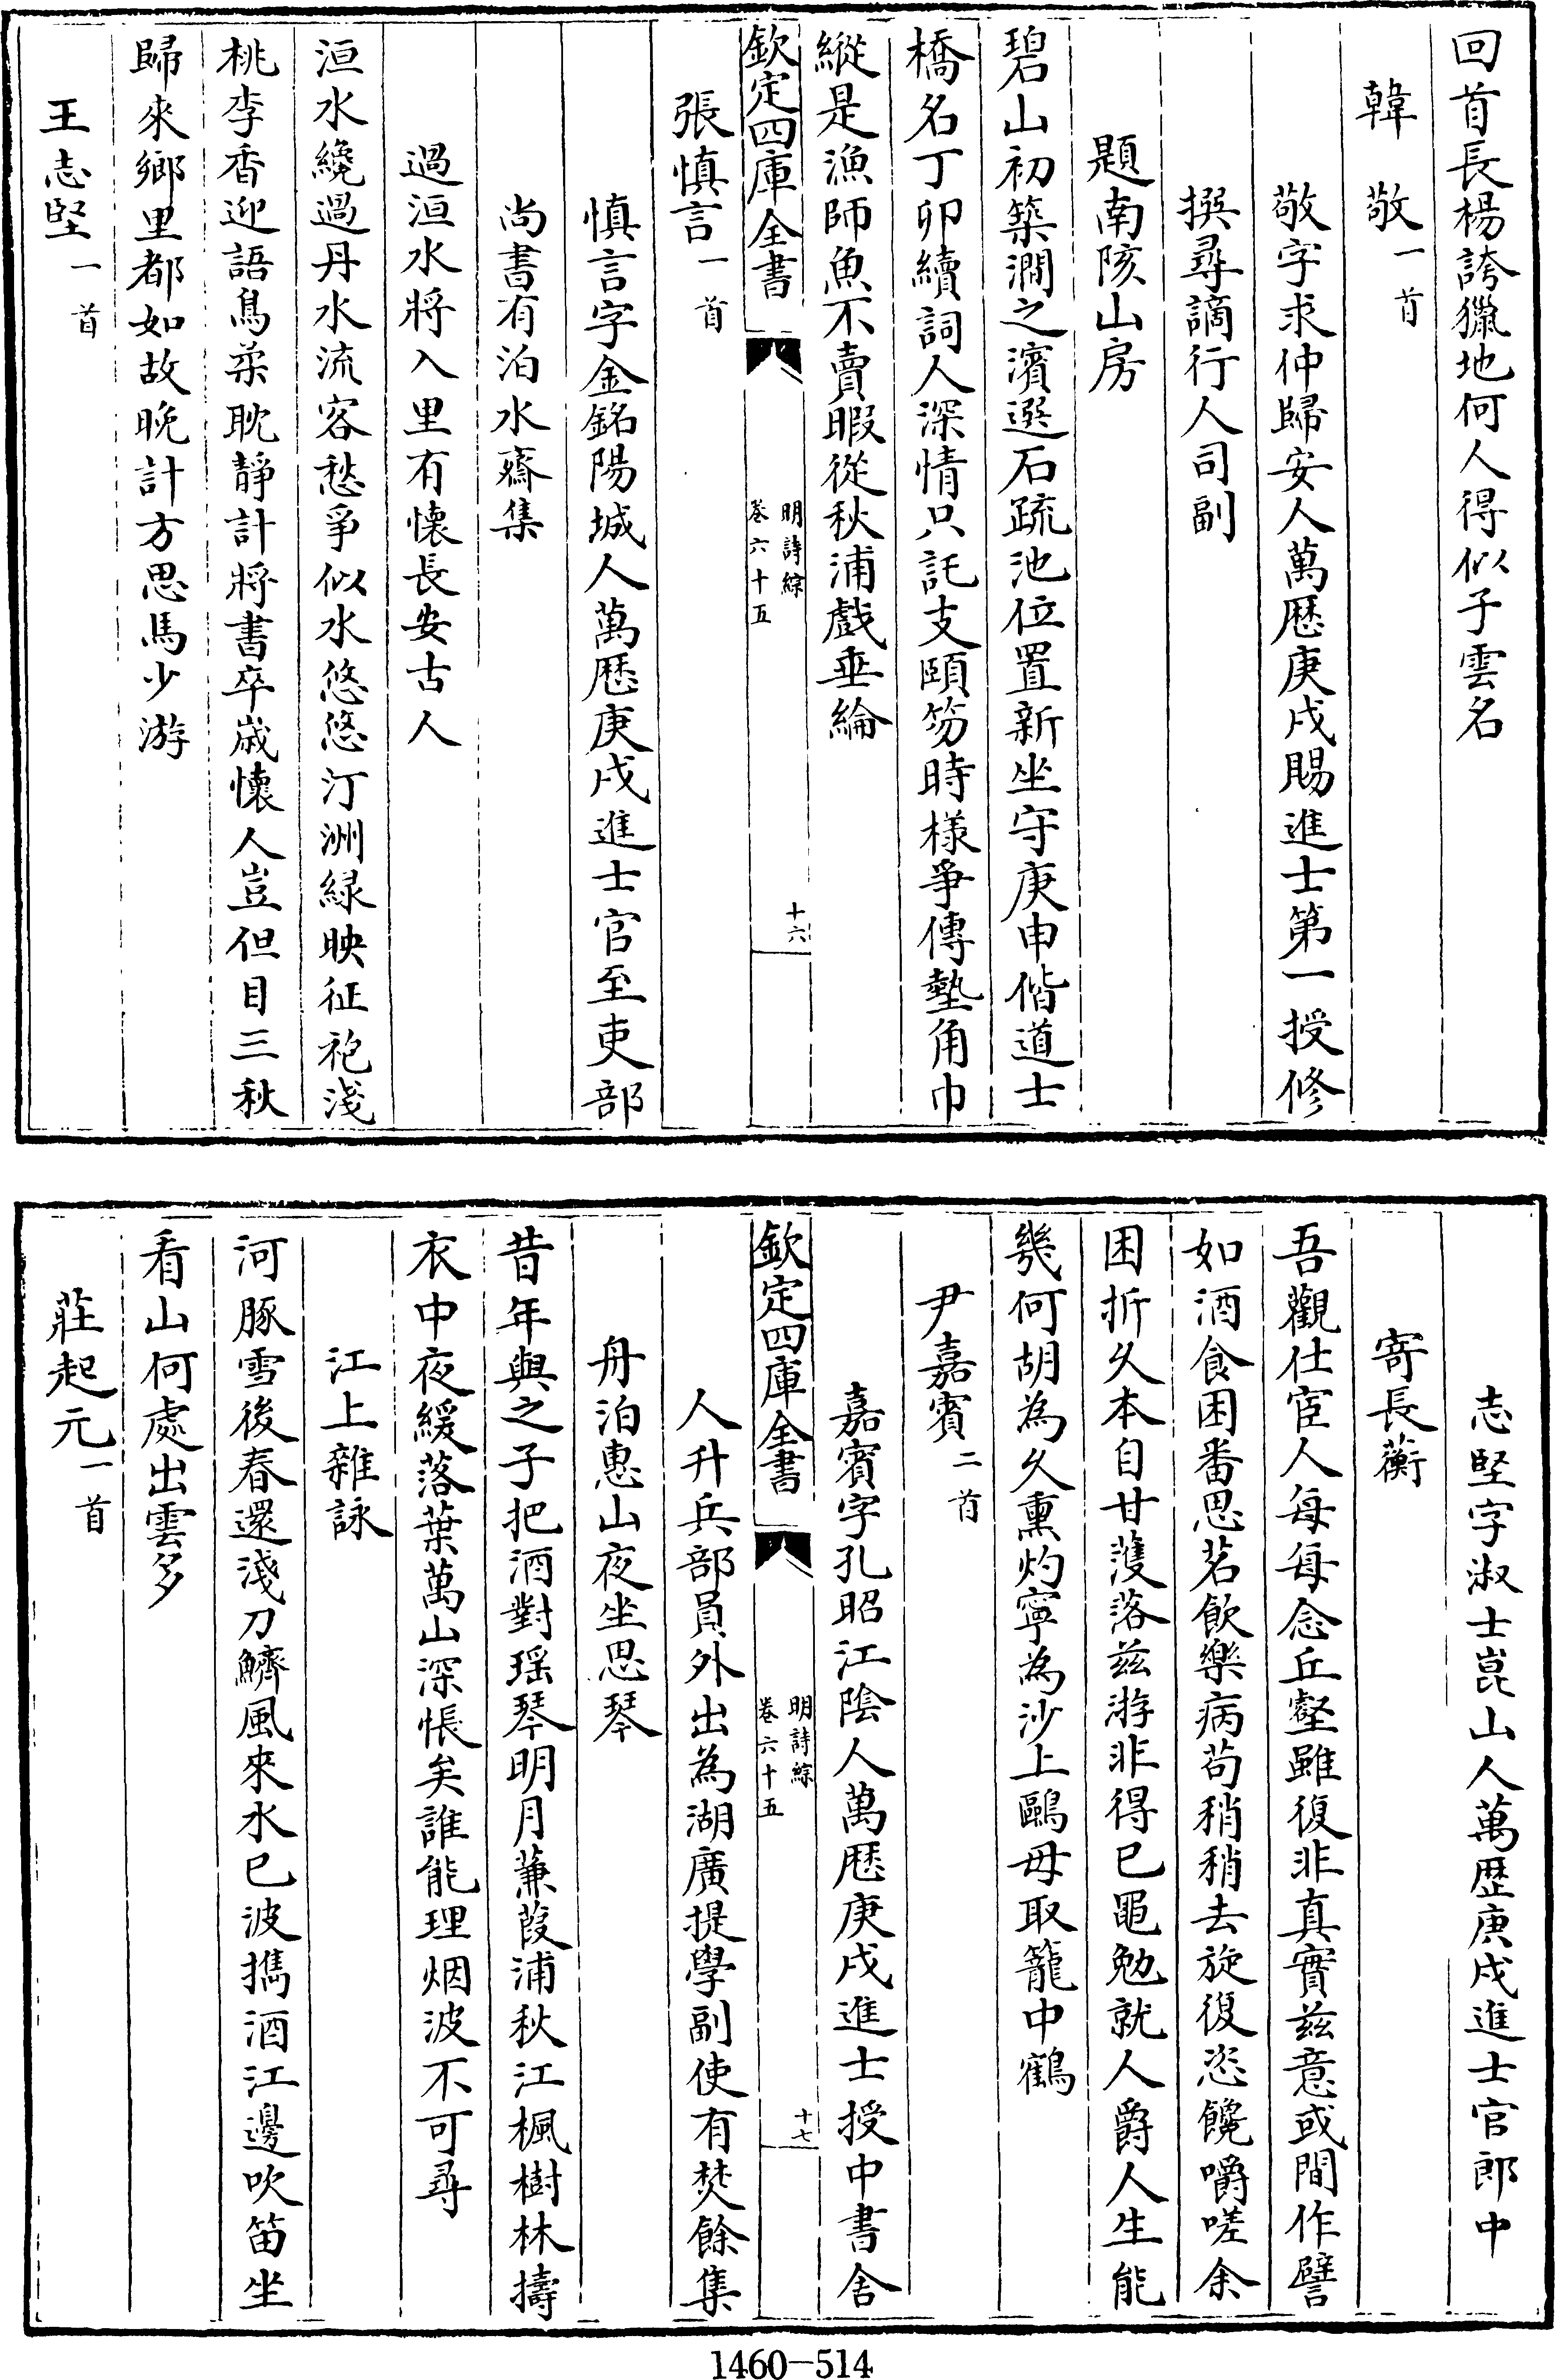 回首長楊誇獵地何人得似子雲名
韓敬一首
敬字求仲歸安人萬厯庚戌賜進士第一授修
撰尋謫行人司副
題南陔山房
碧山初築澗之濱選石疏池位置新坐守庚申偕道士
橋名丁卯續詞人深情只託支頤笏時様爭傳墊角巾
縱是漁師魚不賣暇從秋浦戲垂綸
欽定四庫全書
明詩綜
卷六十五
十六
張慎言一首
慎言字金銘陽城人萬厯庚戌進士官至吏部
尚書有泊水齋集
過洹水將入里有懷長安古人
洹水纔過丹水流客愁爭似水悠悠汀洲緑映征袍淺
桃李香迎語鳥柔耽靜計將書卒歳懷人豈但目三秋
歸來鄉里都如故晚計方思馬少游
王志堅一首
志堅字淑士崑山人萬歴庚戌進士官郎中
寄長蘅
吾觀仕宦人每每念丘壑雖復非真實兹意或間作譬
如酒食困番思茗飲樂病苟稍稍去旋復恣饞嚼嗟余
困折久本自甘濩落兹游非得已黽勉就人爵人生能
幾何胡為久熏灼寧為沙上鷗毋取籠中鶴
尹嘉賓二首
嘉賓字孔昭江陰人萬厯庚戌進士授中書舍
人升兵部員外出為湖廣提學副使有焚餘集
欽定四庫全書
明詩綜
卷六十五
十七
舟泊惠山夜坐思琴
昔年與之子把酒對瑶琴明月蒹葭浦秋江楓樹林擣
衣中夜緩落葉萬山深悵矣誰能理烟波不可尋
江上雜詠
河豚雪後春還淺刀鱭風來水已波擕酒江邊吹笛坐
看山何處出雲多
莊起元一首
1460-514